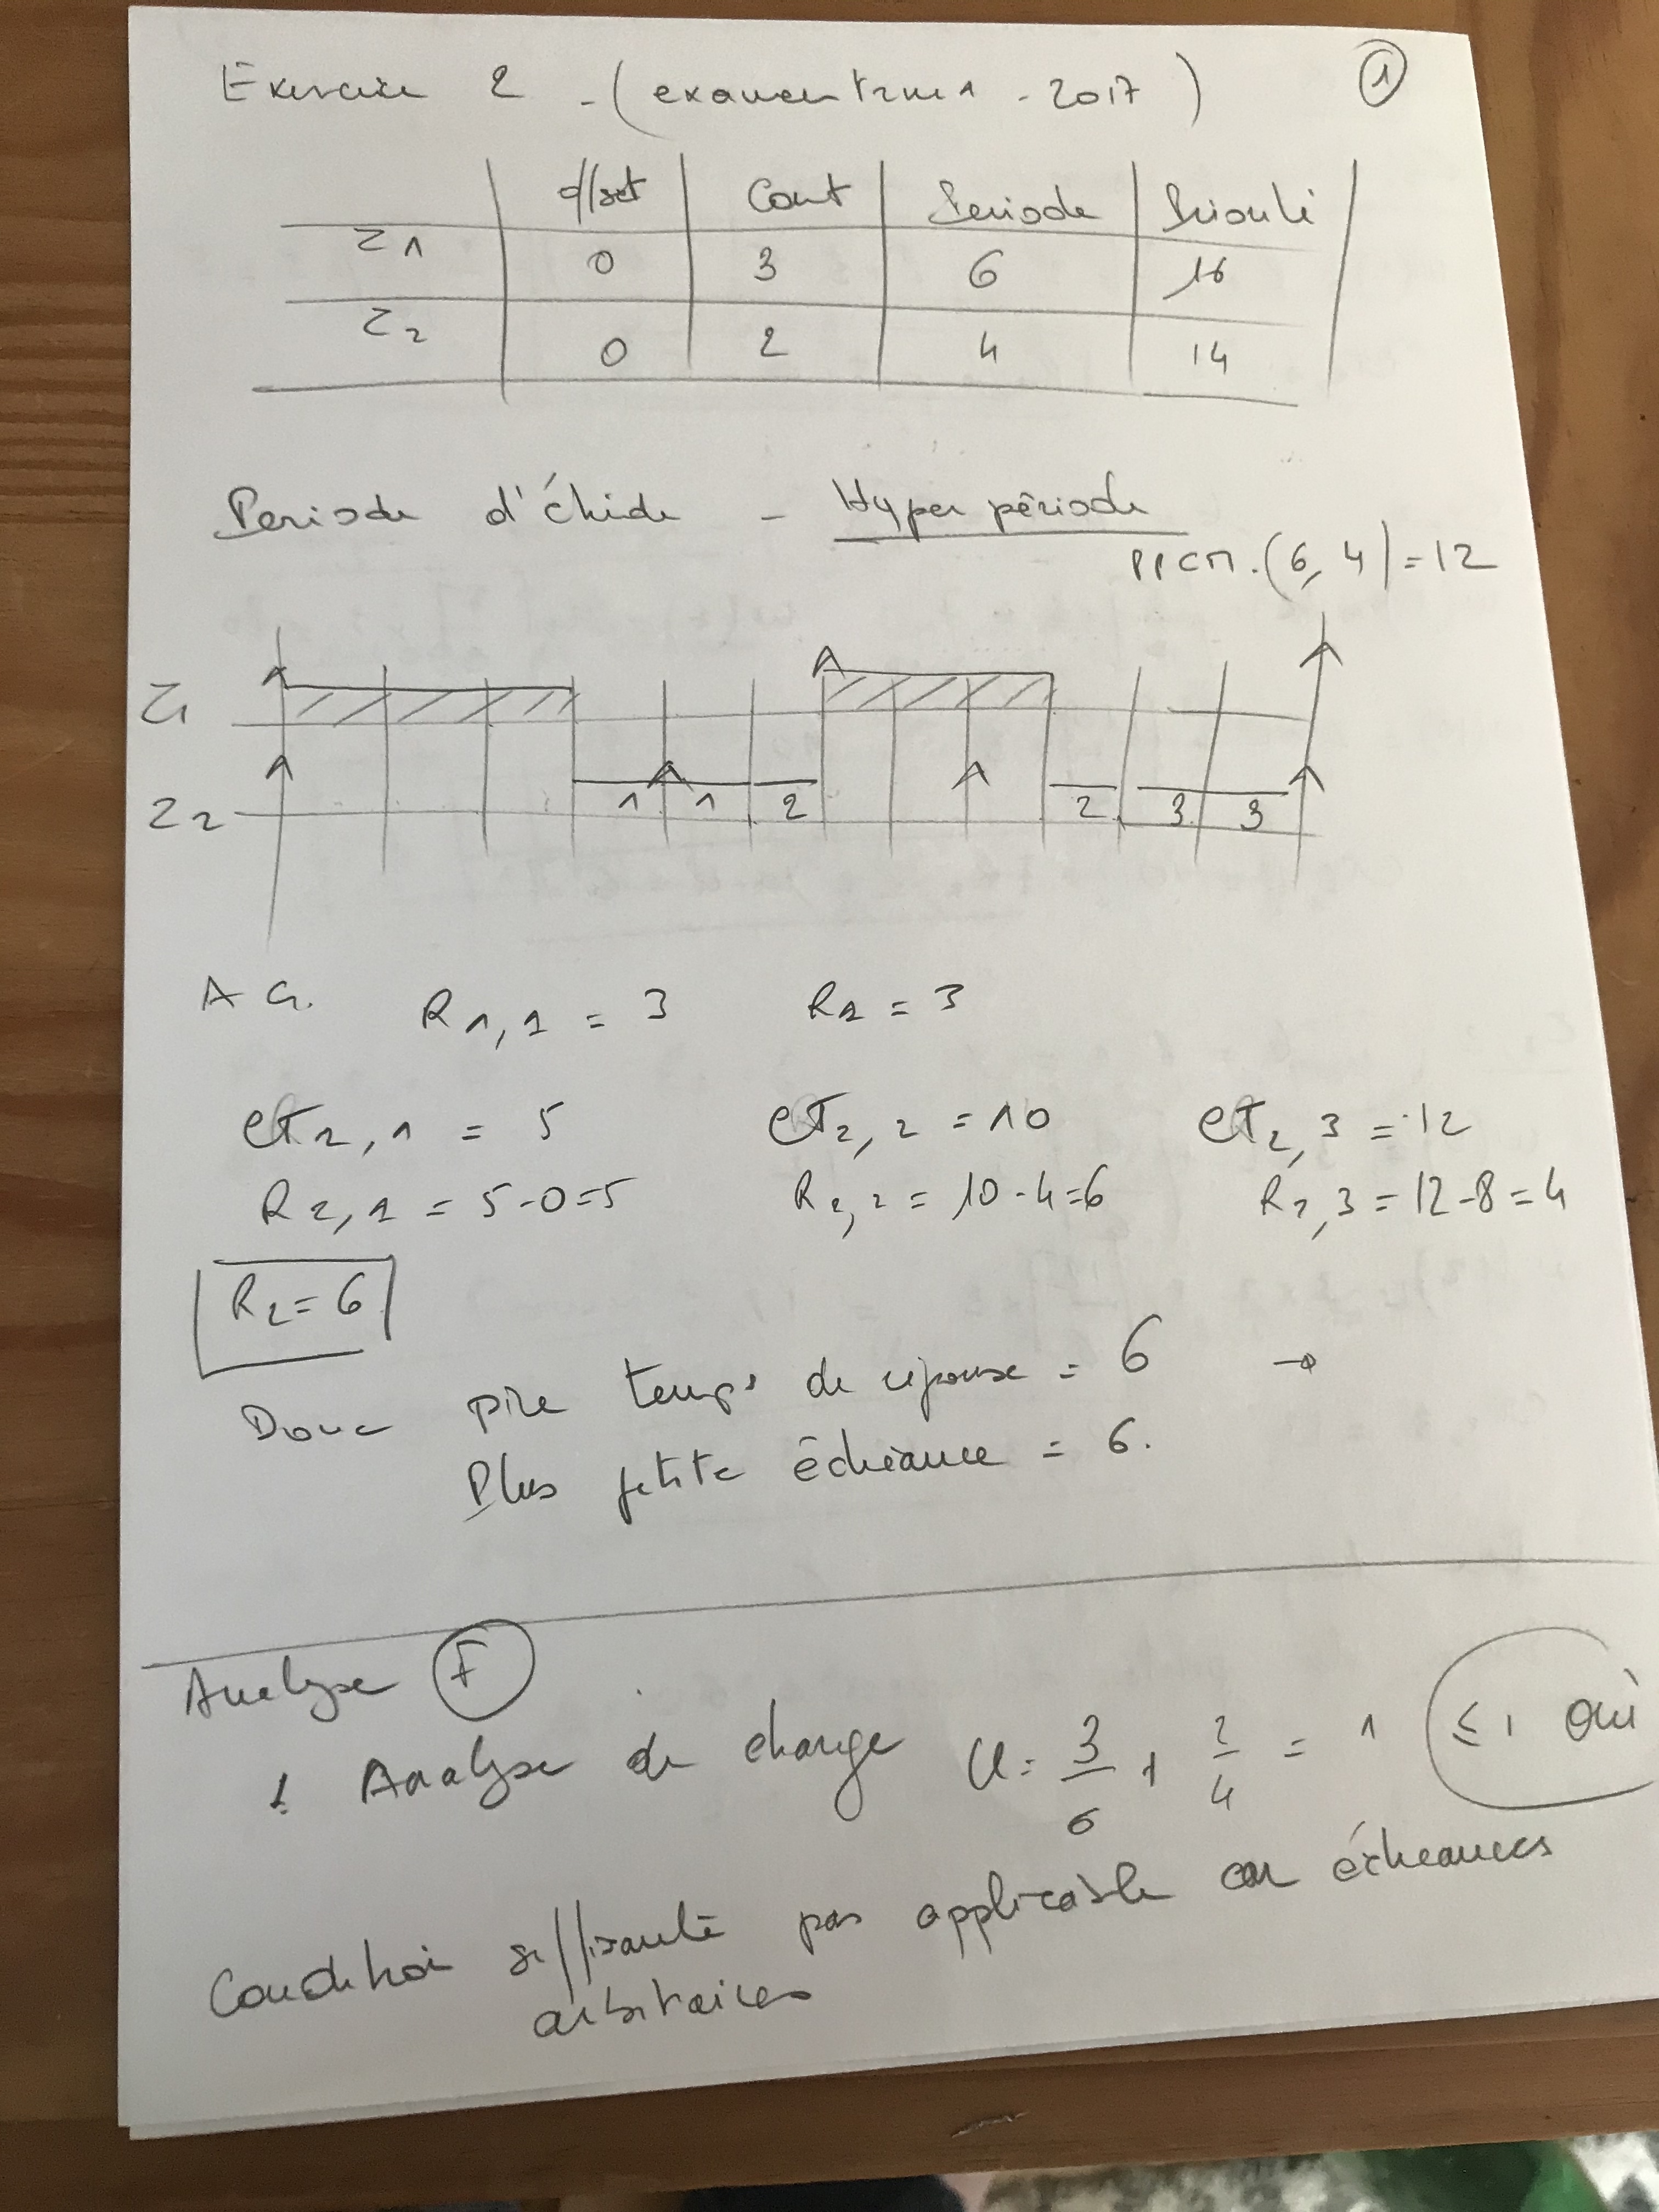 Exercice 2 - (examen - 2017) 1
offset Cout Periode Priorité
τ1 0 3 6 16
τ2 0 2 4 14
Periode d'étude - Hyper période
PPCM.(6, 4) = 12
τ1
τ2 1 1 2 2 3 3
A G. R1,1 = 3 R1 = 3
et2,1 = 5 et2,2 = 10 et2,3 = 12
R2,1 = 5-0=5 R2,2 = 10-4=6 R2,3 = 12-8=4
R2=6
Donc pire temps de réponse = 6 →
Plus petite échéance = 6.
Analyse F
1 Analyse de charge U = 3/6 + 2/4 = 1 ≤ 1 oui
Condition suffisante pas applicable car échéances
arbitraires